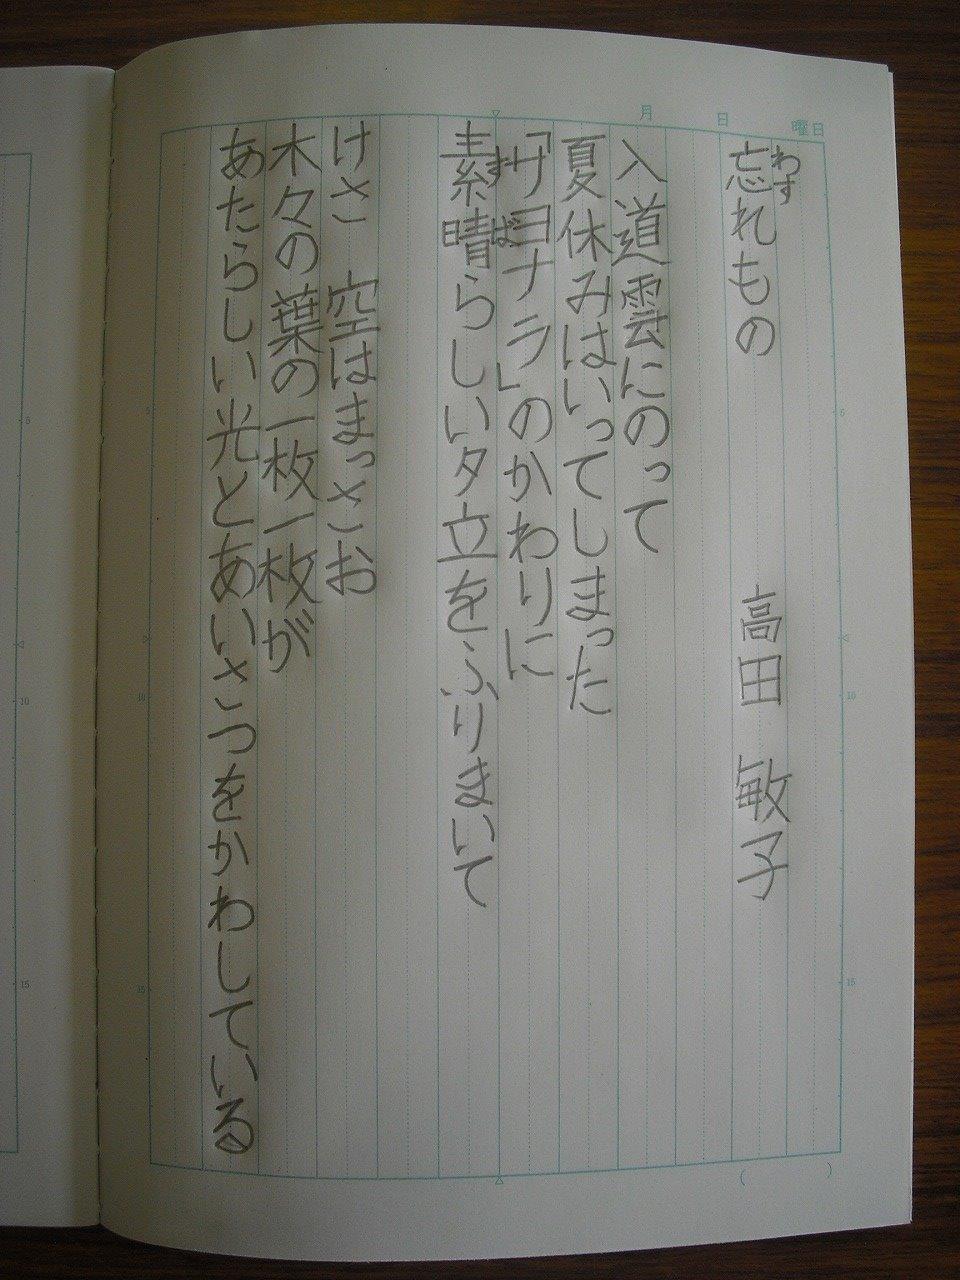 月 日 曜日
忘れもの 高田 敏子
わす
入道雲にのって
夏休みはいってしまった
「サヨナラ」のかわりに
素晴らしい夕立をふりまいて
すば
けさ 空はまっさお
木々の葉の一枚一枚が
あたらしい光とあいさつをかわしている
5
10
15
5
10
15
5
10
15
( )